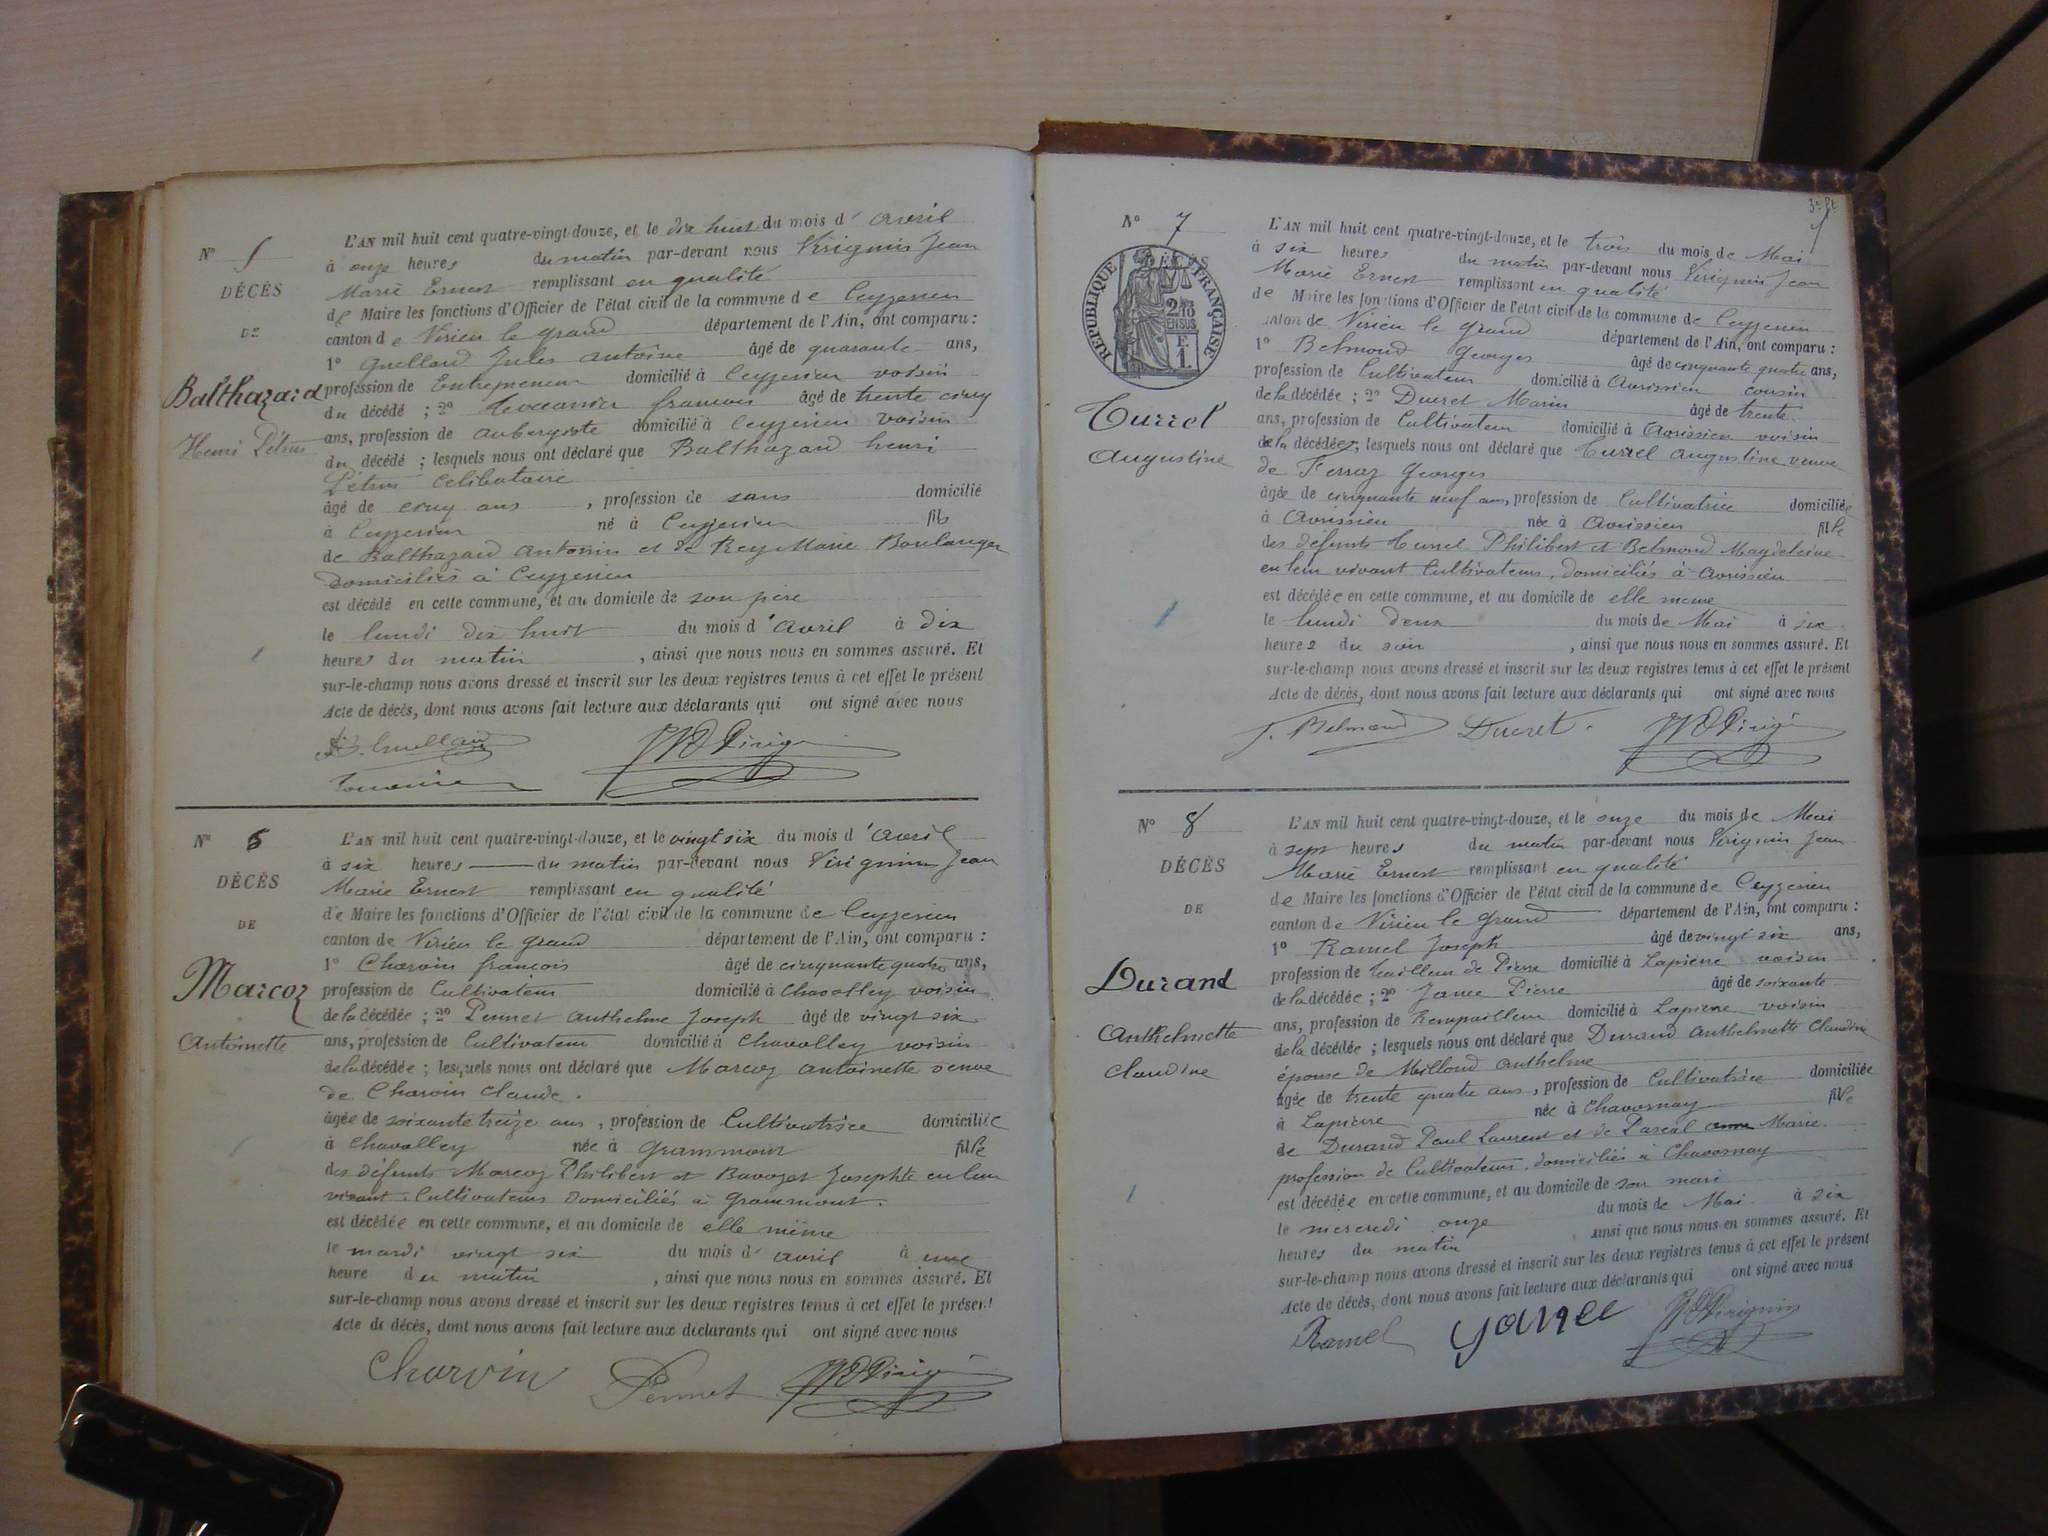 N° 5
DÉCÈS
DE
Balthazard
Henri Pétrus
L'AN mil huit cent quatre-vingt-douze, et le dix huit du mois d' Avril
à onze heures du matin par-devant nous Virignin Jean
Marie Ernest remplissant en qualité
de Maire les fonctions d'Officier de l'état civil de la commune de Ceyzerieu
canton de Virieu le grand département de l'Ain, ont comparu :
1° Guelland Jules Antoine âgé de quarante ans,
profession de Entrepreneur domicilié à Ceyzerieu voisin
du décédé ; 2° françois âgé de trente cinq
ans, profession de aubergiste domicilié à Ceyzerieu voisin
du décédé ; lesquels nous ont déclaré que Balthazard henri
Pétrus Célibataire
âgé de cinq ans , profession de sans domicilié
à Ceyzerieu né à Ceyzerieu fils
de Balthazard Antonin et de Rey Marie Boulanger
domiciliés à Ceyzerieu
est décédé en cette commune, et au domicile de son père
le lundi dix huit du mois d' avril à dix
heures du matin , ainsi que nous nous en sommes assuré. Et
sur-le-champ nous avons dressé et inscrit sur les deux registres tenus à cet effet le présent
Acte de décès, dont nous avons fait lecture aux déclarants qui ont signé avec nous
N° 6
DÉCÈS
DE
Marcoz
Antoinette
L'AN mil huit cent quatre-vingt-douze, et le vingt six du mois d' Avril
à six heures du matin par-devant nous Virignin Jean
Marie Ernest remplissant en qualité
de Maire les fonctions d'Officier de l'état civil de la commune de Ceyzerieu
canton de Virieu le grand département de l'Ain, ont comparu :
1° Charvin françois âgé de cinquante quatre ans,
profession de Cultivateur domicilié à Chavolley voisin
de la décédée ; 2° Pennet Anthelme Joseph âgé de vingt six
ans, profession de Cultivateur domicilié à Chavolley voisin
de la décédée ; lesquels nous ont déclaré que Marcoz Antoinette veuve
de Charvin Claude .
âgée de soixante treize ans , profession de Cultivatrice domiciliée
à Chavolley née à Grammont fille
des défunts Marcoz Philibert et Bavozat Josephte en leur
vivant Cultivateurs domiciliés à Grammont .
est décédée en cette commune, et au domicile de elle même
le mardi vingt six du mois d' avril à une
heure du matin , ainsi que nous nous en sommes assuré. Et
sur-le-champ nous avons dressé et inscrit sur les deux registres tenus à cet effet le présent
Acte de décès, dont nous avons fait lecture aux déclarants qui ont signé avec nous
Charvin Pennet
N° 7
DÉCÈS
RÉPUBLIQUE FRANÇAISE
2/10
EN SUS
E
1
Turrel
Augustine
L'AN mil huit cent quatre-vingt-douze, et le trois du mois de Mai
à six heures du matin par-devant nous Virignin Jean
Marie Ernest remplissant en qualité
de Maire les fonctions d'Officier de l'état civil de la commune de Ceyzerieu
canton de Virieu le grand département de l'Ain, ont comparu :
1° Belmond Georges âgé de cinquante quatre ans,
profession de Cultivateur domicilié à Avrissieu cousin
de la décédée ; 2° Ducret Marin âgé de trente
ans, profession de Cultivateur domicilié à Avrissieu voisin
de la décédée, lesquels nous ont déclaré que Turrel Augustine veuve
de Ferraz Georges
âgée de cinquante neuf ans, profession de Cultivatrice domiciliée
à Avrissieu née à Avrissieu fille
des défunts Turrel Philibert et Belmond Magdeleine
en leur vivant Cultivateurs, domiciliés à Avrissieu
est décédée en cette commune, et au domicile de elle même
le lundi deux du mois de Mai à six
heures du soir , ainsi que nous nous en sommes assuré. Et
sur-le-champ nous avons dressé et inscrit sur les deux registres tenus à cet effet le présent
Acte de décès, dont nous avons fait lecture aux déclarants qui ont signé avec nous
Belmond Ducret .
N° 8
DÉCÈS
DE
Durand
Anthelmette
Claudine
L'AN mil huit cent quatre-vingt-douze, et le onze du mois de Mai
à sept heures du matin par-devant nous Virignin Jean
Marie Ernest remplissant en qualité
de Maire les fonctions d'Officier de l'état civil de la commune de Ceyzerieu
canton de Virieu le grand département de l'Ain, ont comparu :
1° Ramel Joseph âgé de vingt six ans,
profession de tailleur de Pierre domicilié à Lapierre voisin
de la décédée ; 2° Pierre âgé de soixante
ans, profession de Rempailleur domicilié à Lapierre voisin
de la décédée ; lesquels nous ont déclaré que Durand Anthelmette Claudine
épouse de Milloud Anthelme
âgée de trente quatre ans , profession de Cultivatrice domiciliée
à Lapierre née à Chavornay fille
de Durand Paul Laurent et de Pascal Marie.
profession de Cultivateurs, domiciliés à Chavornay
est décédée en cette commune, et au domicile de son mari
le mercredi onze du mois de Mai à six
heures du matin ainsi que nous nous en sommes assuré. Et
sur-le-champ nous avons dressé et inscrit sur les deux registres tenus à cet effet le présent
Acte de décès, dont nous avons fait lecture aux déclarants qui ont signé avec nous
Ramel